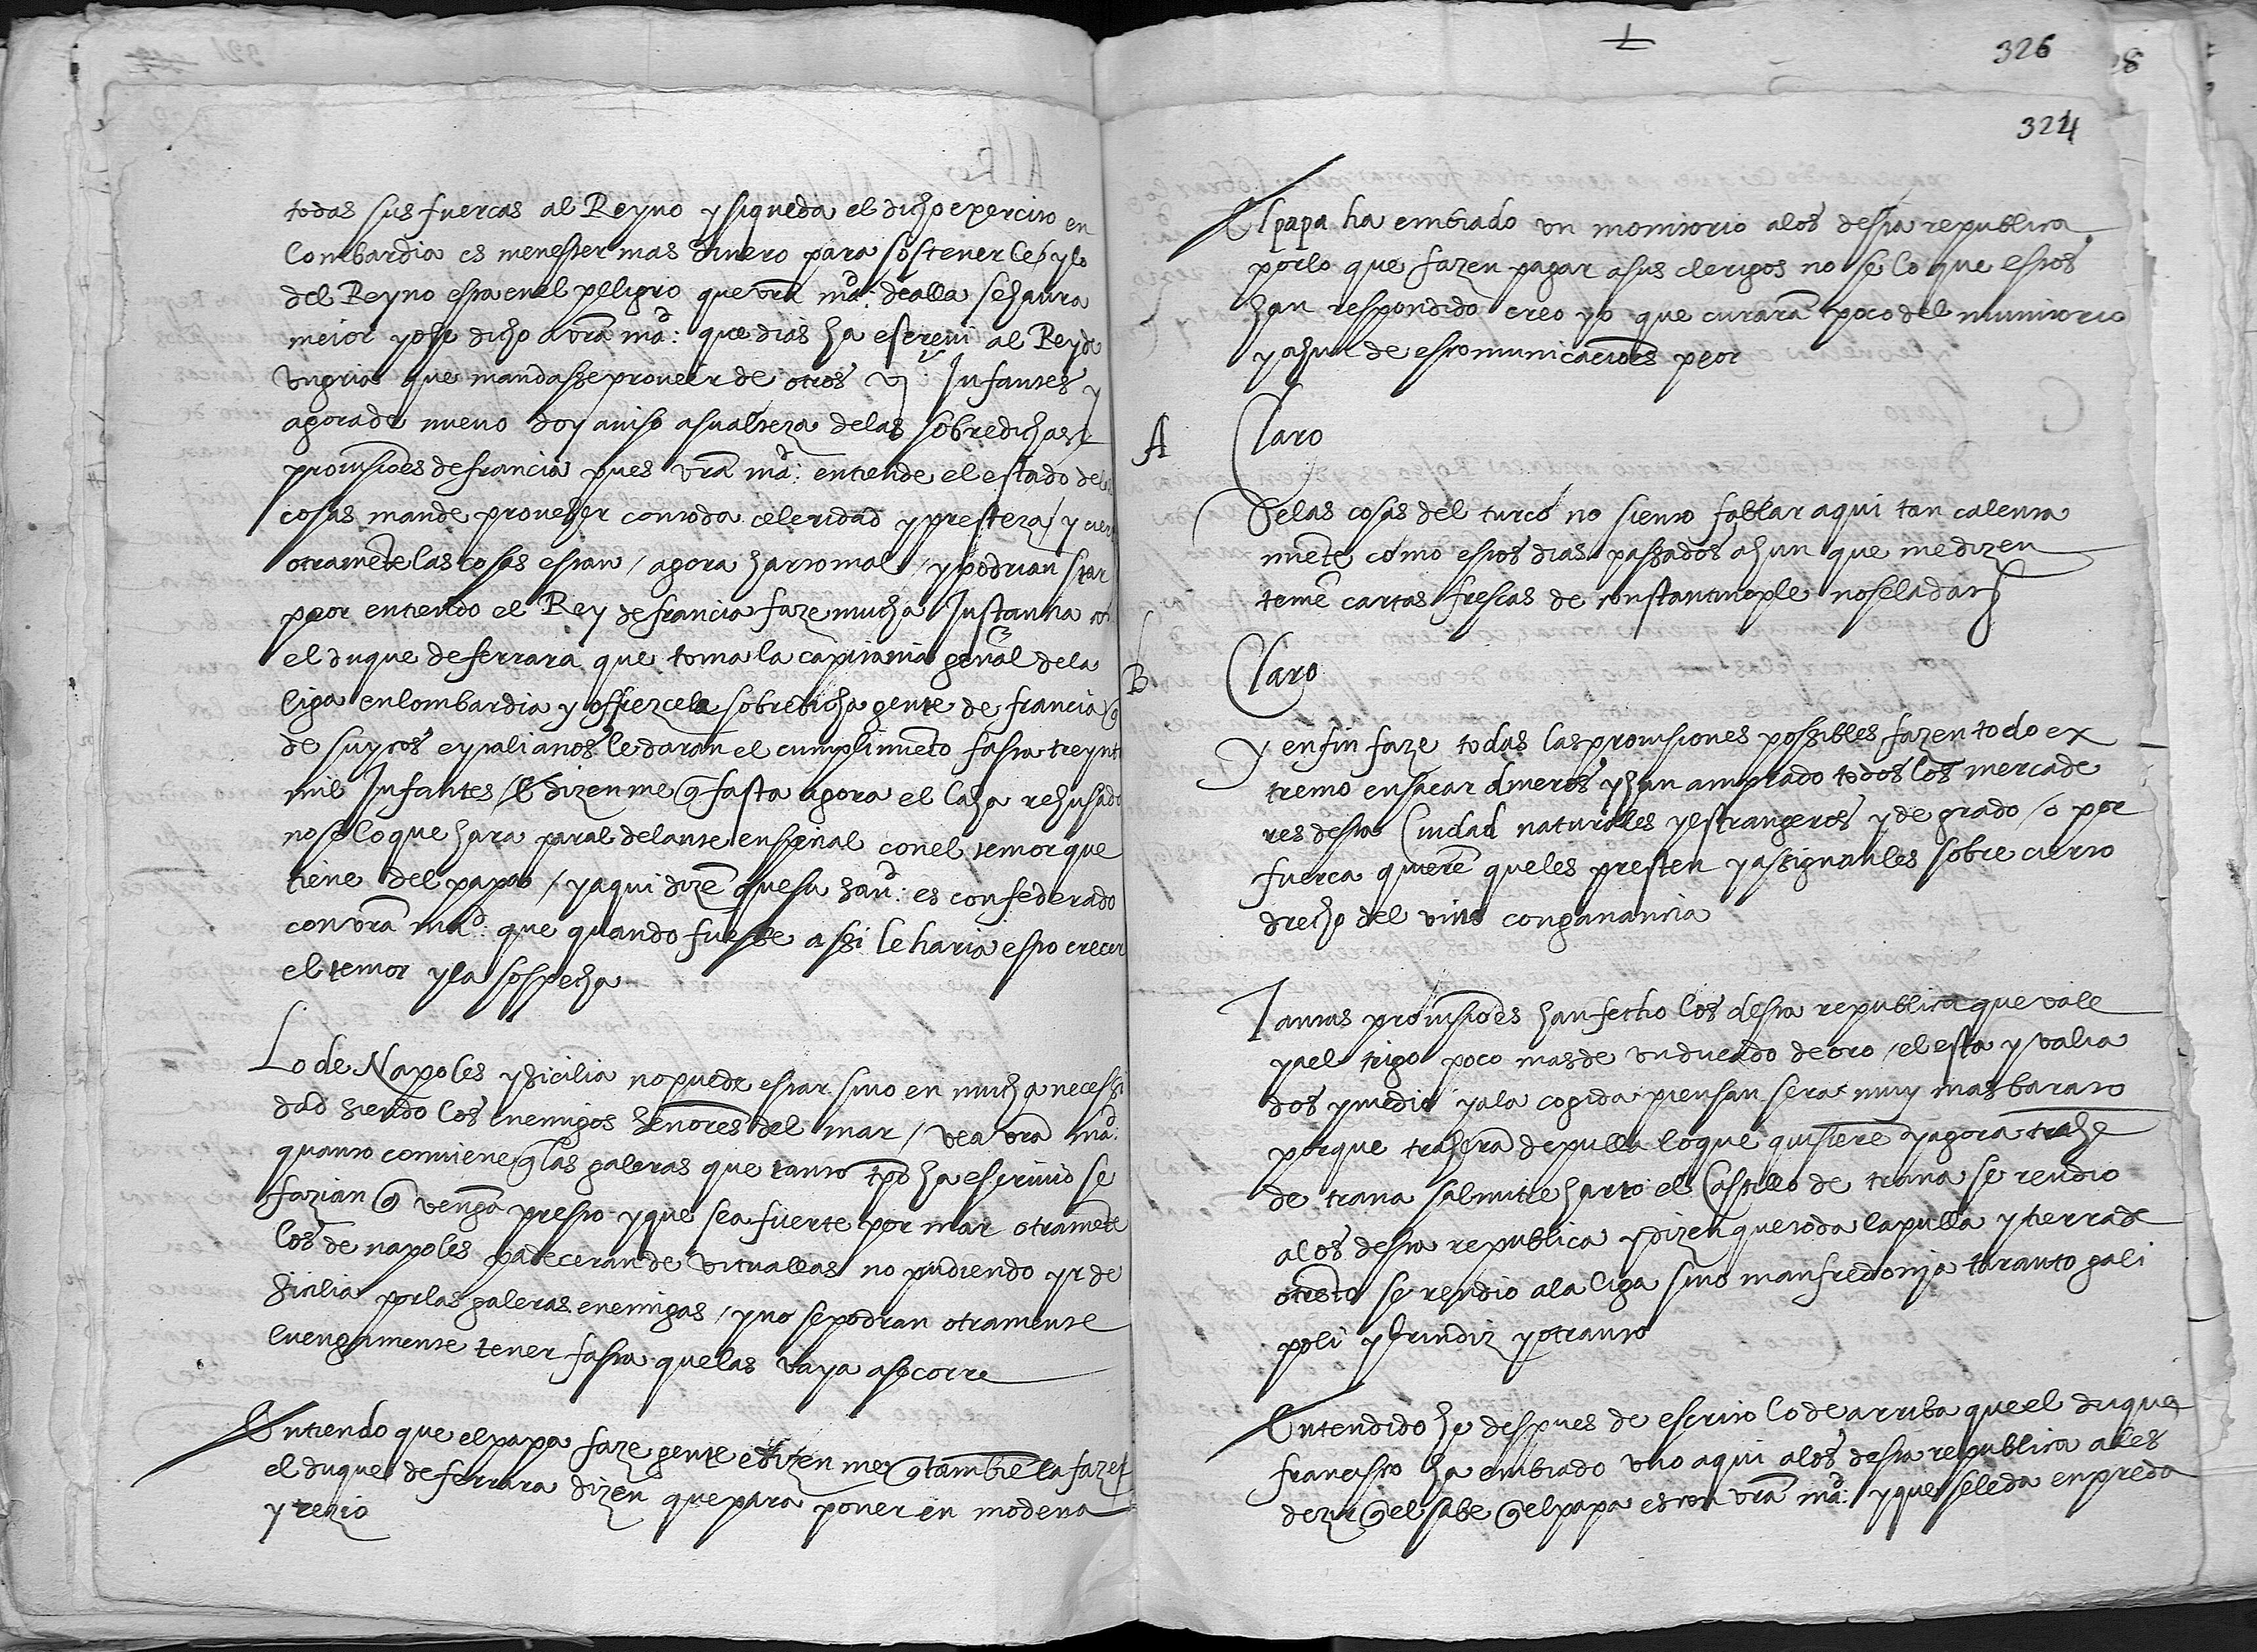 todas sus fuercas al Reyno y si queda el dicho exercito en
lombardia es menester mas dinero para sostenerle / y lo
del Reyno esta en el peligro que vrã md: de alla se haura
meior yo he dicho a vrã md: que dias ha escreui al Rey de
vngria que mandasse proueir de otros vj Infantes y
agora de nueuo doy auiso a su alteza delas sobredichas
prouisiões de francia pues vrã md: entiende el estado delas
cosas mande proueher con toda celeridad y presteza / y
otramẽte las cosas estan / agora harto mal / y podrian star
peor entiendo el Rey de francia faze mucha Instantia con
el duque de ferrara que toma la capitania genãl dela
liga en lombardia y offrezcela sobredicha gente de francia q̃
de suyços e ytalianos le daran el cumplimiẽto fasta treynta
mil Infantes / e dizenme q̃ fasta agora el la ha rehusado
no se lo que hara para al delante en special con el temor que
tiene del papa / y aqui dizẽ que su sand: es confederado
con vrã md: que quando fuesse assi le haria esto crecer
el temor y la sospecha
Lo de Napoles y Sicilia no puede estar sino en mucha necessi
dad siendo los enemigos señores del mar / vea vrã md:
quanto conuiene q̃ las galeras que tanto tpõ ha escriuio se
fazian q̃ vengã presto y que sea fuerte por mar otramẽte
los de napoles padeceran de vituallas no pudiendo yr de
Sicilia por las galeras enemigas / y no se podran otramente
luengamente tener fasta que las vaya a socorre
Entiendo que el papa faze gente e dizen me q̃ tambiẽ la faze
el duque de ferrara dizen que para poner en modena
y rezio
326
324
El papa ha embiado vn monitorio a los desta republica
por lo que fazen pagar a sus clerigos no se lo que estos
han respondido creo yo que curarã poco del munitorio
y ahun de escomunicaciões peor
A Claro
Delas cosas del turco no siento fablar aqui tan calienta
miẽte como estos dias passados ahun que me dizen
tienẽ cartas frescas de constantinople no se la dan
B Claro
Y en fin faze todas las prouisiones possibles fazen todo ex
tremo en sacar dineros y han amprado todos los mercade
res desta Ciudad naturales y estrangeros y de grado / o por
fuerca quierẽ que les presten y assignanles sobre cierto
drecho del vino con ganancia
Tantas prouisiões han fecho los desta republica que vale
ya el trigo poco mas de vn ducado de oro / el esta y valia
dos y medio y ala cogida piensan sera muy mas barato
porque traherã de pulla lo que quisierẽ y agora trahe
de trana salnitre harto el Castillo de trana se rendio
a los desta republica y dizen que toda la pulla y tierra de
otrẽto se rendio ala liga sino manfredonja taranto gali
poli y brindiz y otranto
Entendido he despues de escrito lo de arriba que el duque
francisco ha embiado vno aqui a los desta republica a les
dezir q̃ el sabe q̃ el papa es con vrã md: y que se le da en preda